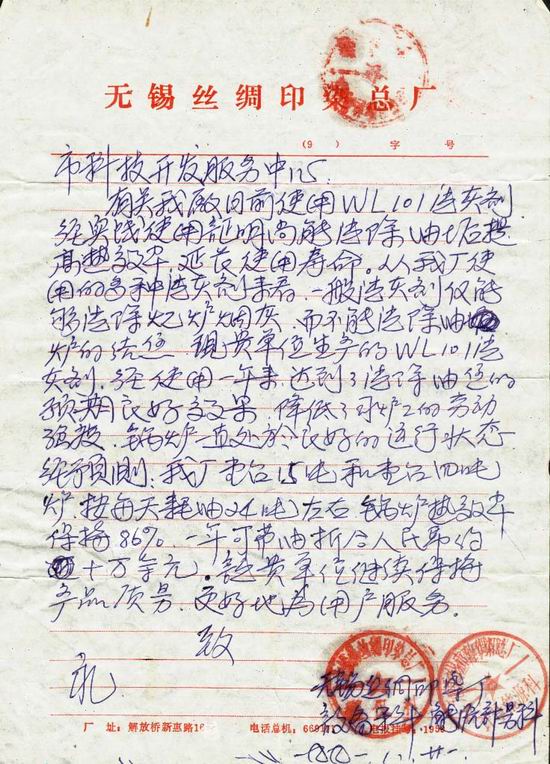 无锡丝绸印染总厂
(9 ) 字 号
市科技开发服务中心
有关我廠目前使用WL101清灰剂
经实践使用証明尚能清除油垢提
高热效率、延长使用寿命。从我厂使
用的各种清灰剂来看,一般清灰剂仅能
够清除烧炉烟灰、而不能清除油
炉的结垢 现贵单位生产的WL101清
灰剂.经使用一年来,达到了清除油垢的
预期良好效果 降低了司炉工的劳动
强度.锅炉一直处於良好的运行状态
经预测:我厂 台15吨和 台四吨
炉 按每天耗油24吨左右 锅炉热效率
保持86% 一年可节油折合人民币约
十万余元.望贵单位继续保持
产品质量.更好地为用户服务。
致
礼
无锡丝绸印染厂
能源计量科
厂 址:解放桥新惠路16 电话总机:669 电报挂号:1958